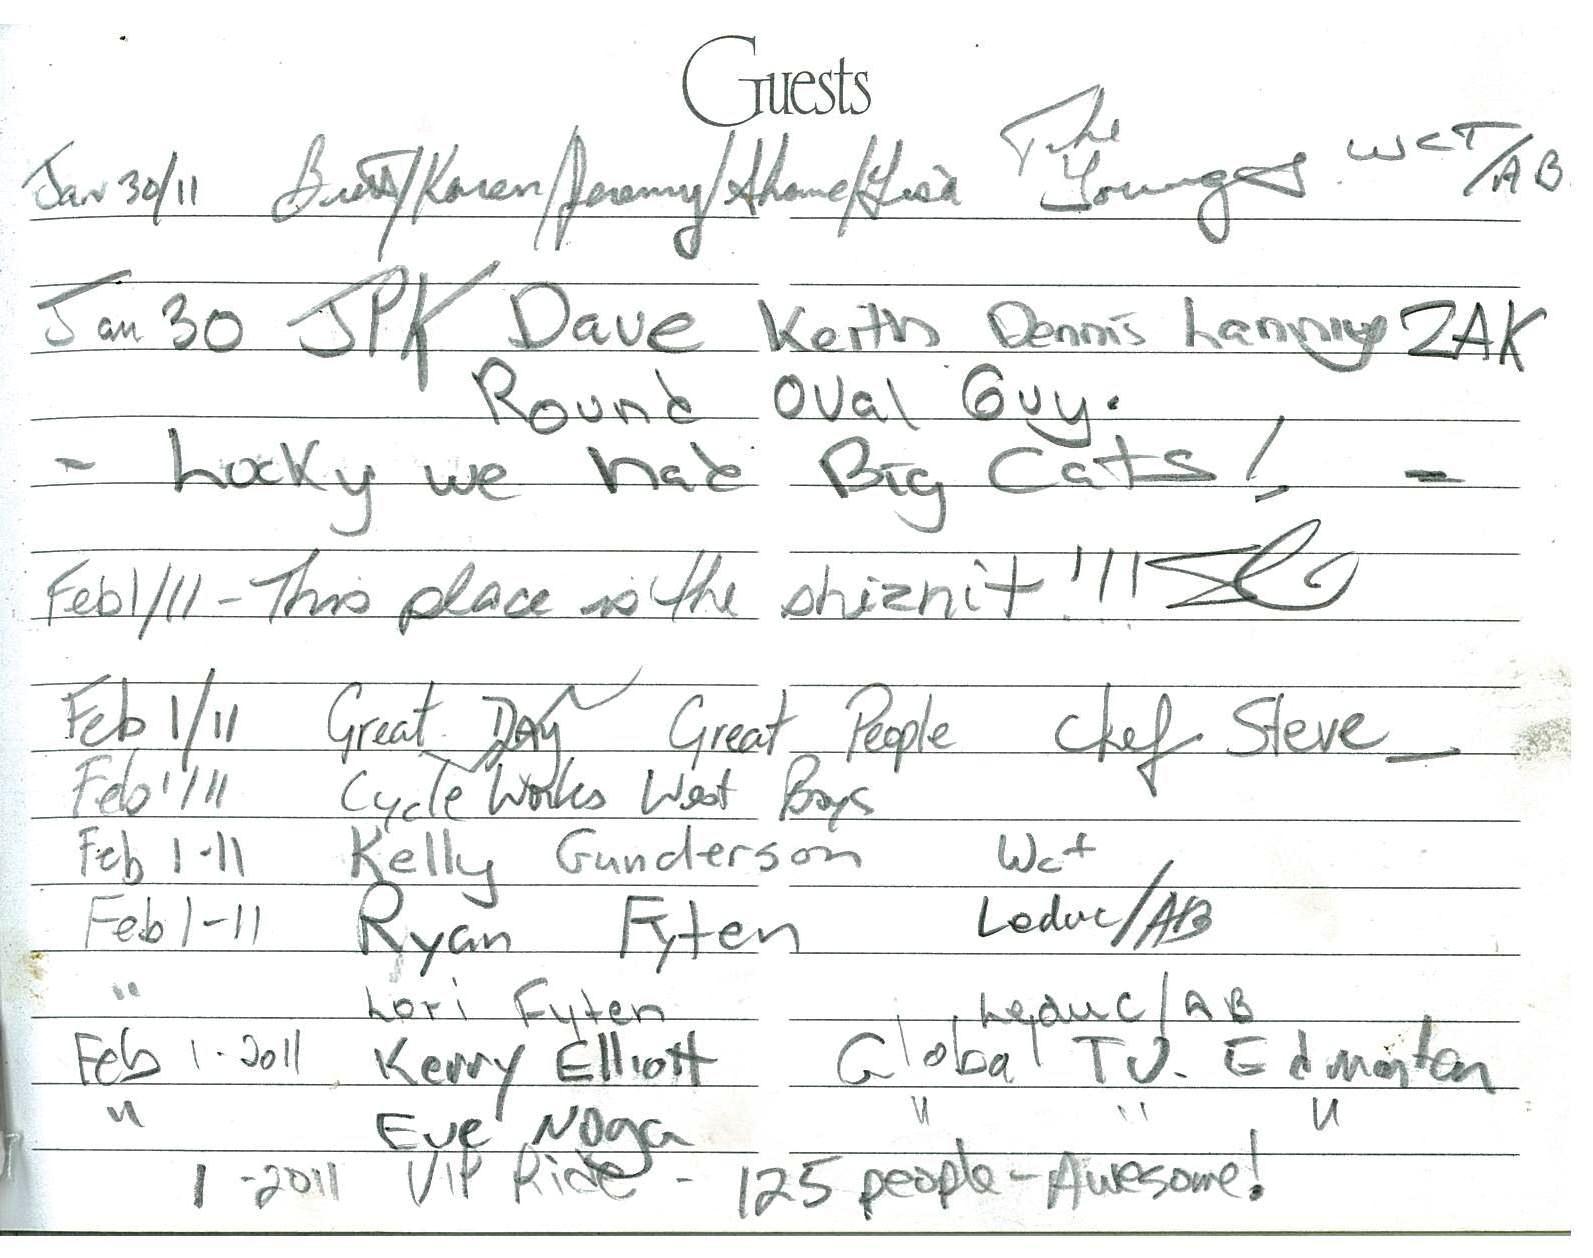 Guests
Jan 30/11 Brett/Karen/Jeremy/Shane/Lisa The Youngs. WCT/AB.
Jan 30 JPK Dave Keith Dennis Lanny ZAK
Round Oval Guy.
- Lucky we had Big Cats! -
Feb 1/11 - This place is the shiznit !!!
Feb 1/11 Great DAY Great People Chef Steve
Feb 1/11 Cycle Works West Boys
Feb 1-11 Kelly Gunderson Wct
Feb 1-11 Ryan Fyten Leduc/AB
" Lori Fyten Leduc/AB
Feb 1-2011 Kerry Elliott Global TV. Edmonton
" Eve Noga " " "
1-2011 VIP Ride - 125 people - Awesome!